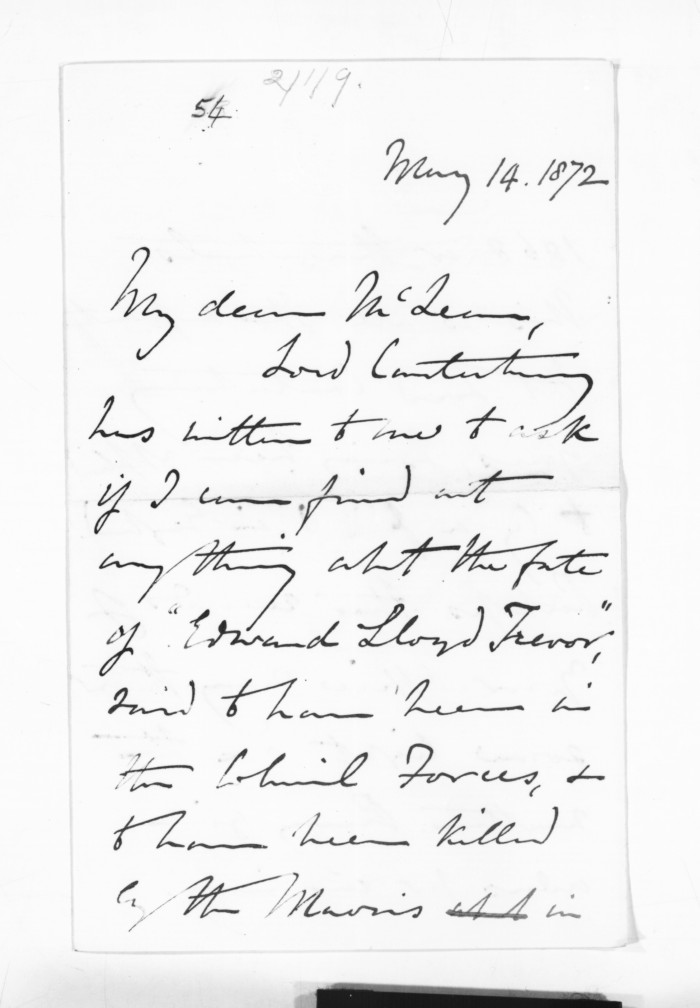 2/119.
54
May 14. 1872
My dear McLean,
Lord Canterbury
has written to me to ask
if I can find out
anything abt the fate
of "Edward Lloyd Trevor",
said to have been in
the Colonial Forces, &
to have been killed
by the Maoris in